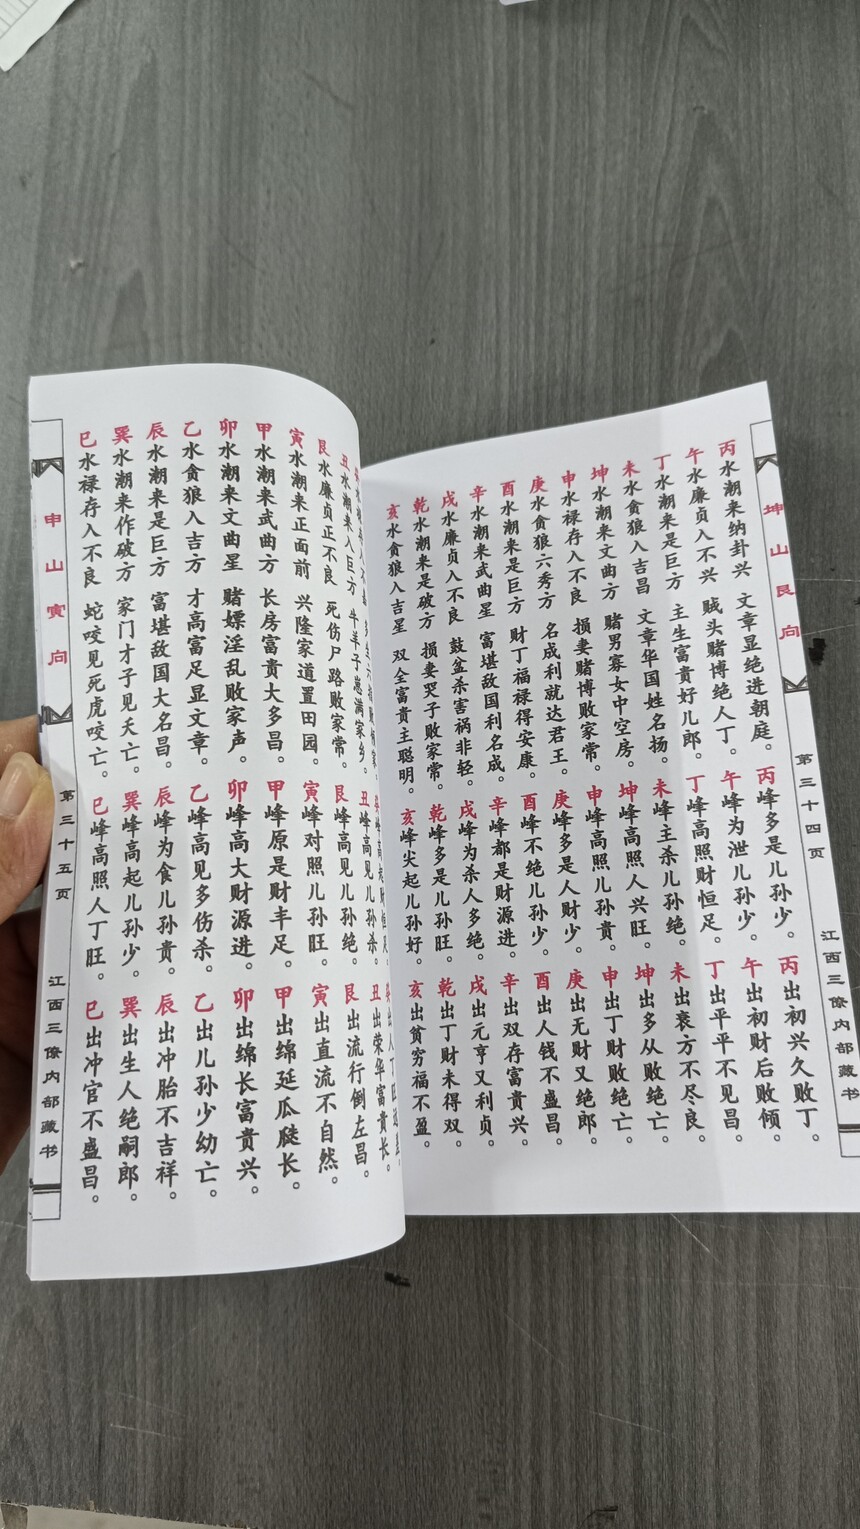 坤山艮向 第三十四页 江西三僚内部藏书
丙水潮来纳卦兴 文章显绝进朝庭。 丙峰多是儿孙少。 丙出初兴久败丁。
午水廉贞入不兴 贼头赌博绝人丁。 午峰为泄儿孙少。 午出初财后败倾。
丁水潮来是巨方 主生富贵好儿郎。 丁峰高照财恒足。 丁出平平不见昌。
未水贪狼入吉昌 文章华国姓名扬。 未峰主杀儿孙绝。 未出衰方不尽良。
坤水潮来文曲方 赌男寡女中空房。 坤峰高照人兴旺。 坤出多从败绝亡。
申水禄存入不良 损妻赌博败家常。 申峰高照儿孙贵。 申出丁财败绝亡。
庚水贪狼六秀方 名成利就达君王。 庚峰多是人财少。 庚出无财又绝郎。
酉水潮来是巨方 财丁福禄得安康。 酉峰不绝儿孙少。 酉出人钱不盛昌。
辛水潮来武曲星 富堪敌国利名成。 辛峰都是财源进。 辛出双存富贵兴。
戌水廉贞入不良 鼓盆杀害祸非轻。 戌峰为杀人多绝。 戌出元亨又利贞。
乾水潮来是破方 损妻哭子败家常。 乾峰多是儿孙旺。 乾出丁财未得双。
亥水贪狼入吉星 双全富贵主聪明。 亥峰尖起儿孙好。 亥出贫穷福不盈。
丑水潮来入巨方 牛羊子崽满家乡。 丑峰高见儿孙杀。 丑出荣华富贵长。
艮水廉贞正不良 死伤尸路败家常。 艮峰高见儿孙绝。 艮出流行倒左昌。
寅水潮来正面前 兴隆家道置田园。 寅峰对照儿孙旺。 寅出直流不自然。
甲水潮来武曲方 长房富贵大多昌。 甲峰原是财丰足。 甲出绵延瓜瓞长。
卯水潮来文曲星 赌嫖淫乱败家声。 卯峰高大财源进。 卯出绵长富贵兴。
乙水贪狼入吉方 才高富足显文章。 乙峰高见多伤杀。 乙出儿孙少幼亡。
辰水潮来是巨方 富堪敌国大名昌。 辰峰为食儿孙贵。 辰出冲胎不吉祥。
巽水潮来作破方 家门才子见夭亡。 巽峰高起儿孙少。 巽出生人绝嗣郎。
巳水禄存入不良 蛇咬见死虎咬亡。 巳峰高照人丁旺。 巳出冲官不盛昌。
申山寅向 第三十五页 江西三僚内部藏书